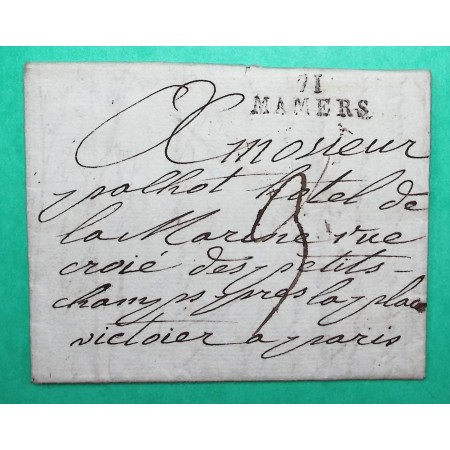 71
MAMERS
A monsieur
palhot hotel de
la Marine rue
croié des petits-
champs pres la place
victoier a paris